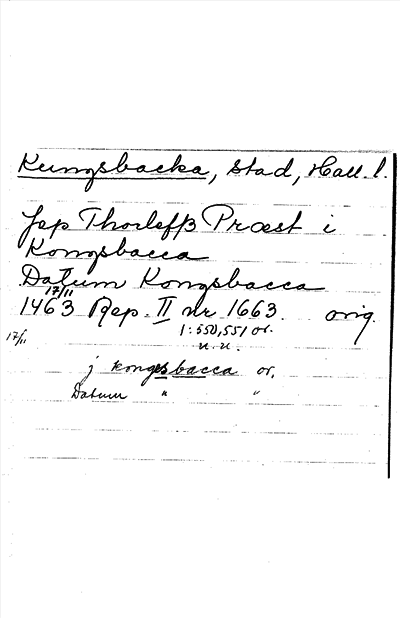 Kungsbacka, stad, Hall. l.
Jep Thorleffß Præst i
Kongsbacca
Datum Kongsbacca
17/11
1463 Rep. II nr 1663. orig.
1:550,551 or.
17/11
n. u.
j kongesbacca or.
Datum " "